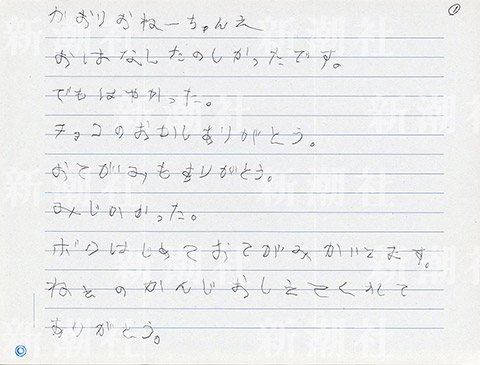 ①
かおりおねーちゃんえ
おはなしたのしかったです。
でもはやかった。
チョコのおかしありがとう。
おてがみもありがとう。
みじかかった。
ボクはじめておてがみかいてます。
ねぇのかんじおしえてくれて
ありがとう。
©
新潮社